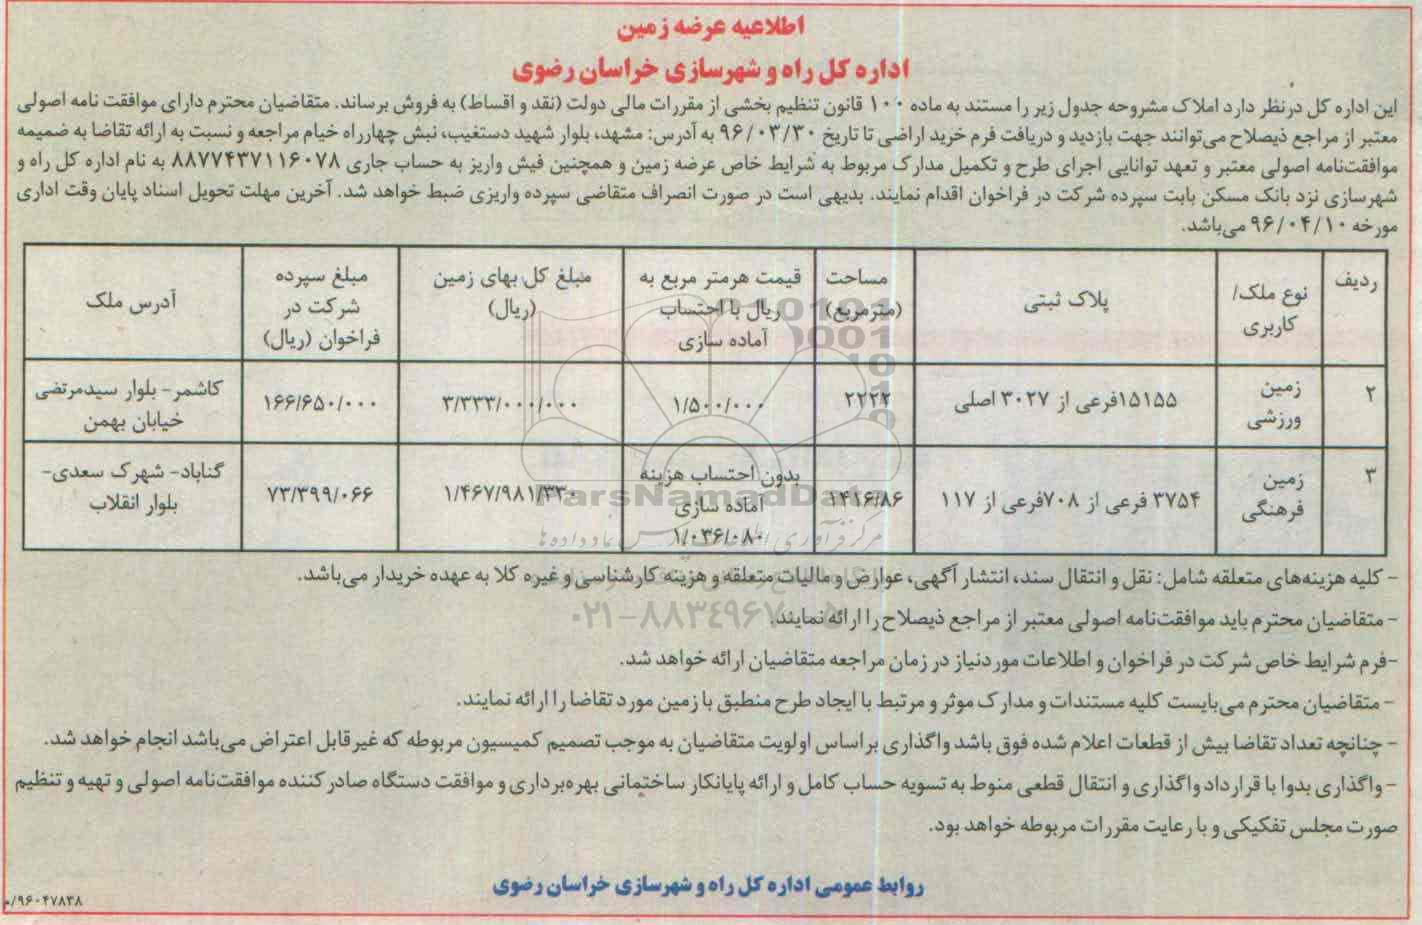 اطلاعیه عرضه زمین
اداره کل راه و شهرسازی خراسان رضوی
این اداره کل درنظر دارد املاک مشروحه جدول زیر را مستند به ماده ۱۰۰ قانون تنظیم بخشی از مقررات مالی دولت (نقد و اقساط) به فروش برساند. متقاضیان محترم دارای موافقت نامه اصولی
معتبر از مراجع ذیصلاح می‌توانند جهت بازدید و دریافت فرم خرید اراضی تا تاریخ ۹۶/۰۳/۳۰ به آدرس: مشهد، بلوار شهید دستغیب، نبش چهارراه خیام مراجعه و نسبت به ارائه تقاضا به ضمیمه
موافقت‌نامه اصولی معتبر و تعهد توانایی اجرای طرح و تکمیل مدارک مربوط به شرایط خاص عرضه زمین و همچنین فیش واریز به حساب جاری ۸۸۷۷۴۳۷۱۱۶۰۷۸ به نام اداره کل راه و
شهرسازی نزد بانک مسکن بابت سپرده شرکت در فراخوان اقدام نمایند. بدیهی است در صورت انصراف متقاضی سپرده واریزی ضبط خواهد شد. آخرین مهلت تحویل اسناد پایان وقت اداری
مورخه ۹۶/۰۴/۱۰ می‌باشد.
ردیف
نوع ملک/
کاربری
پلاک ثبتی
مساحت
(مترمربع)
قیمت هرمتر مربع به
ریال با احتساب
آماده سازی
مبلغ کل بهای زمین
(ریال)
مبلغ سپرده
شرکت در
فراخوان (ریال)
آدرس ملک
۲
زمین
ورزشی
۱۵۱۵۵فرعی از ۳۰۲۷ اصلی
۲۲۲۲
۱/۵۰۰/۰۰۰
۳/۳۳۳/۰۰۰/۰۰۰
۱۶۶/۶۵۰/۰۰۰
کاشمر- بلوار سیدمرتضی
خیابان بهمن
۳
زمین
فرهنگی
۳۷۵۴ فرعی از ۷۰۸فرعی از ۱۱۷
۱۴۱۶/۸۶
بدون احتساب هزینه
آماده سازی
۱/۰۳۶/۰۸۰
۱/۴۶۷/۹۸۱/۳۳۰
۷۳/۳۹۹/۰۶۶
گناباد- شهرک سعدی-
بلوار انقلاب
ParsNamadData
- کلیه هزینه‌های متعلقه شامل: نقل و انتقال سند، انتشار آگهی، عوارض و مالیات متعلقه و هزینه کارشناسی و غیره کلا به عهده خریدار می‌باشد.
- متقاضیان محترم باید موافقت‌نامه اصولی معتبر از مراجع ذیصلاح را ارائه نمایند.
۰۲۱-۸۸۳۴۹۶۷۰-۵
-فرم شرایط خاص شرکت در فراخوان و اطلاعات موردنیاز در زمان مراجعه متقاضیان ارائه خواهد شد.
- متقاضیان محترم می‌بایست کلیه مستندات و مدارک موثر و مرتبط با ایجاد طرح منطبق با زمین مورد تقاضا را ارائه نمایند.
- چنانچه تعداد تقاضا بیش از قطعات اعلام شده فوق باشد واگذاری براساس اولویت متقاضیان به موجب تصمیم کمیسیون مربوطه که غیرقابل اعتراض می‌باشد انجام خواهد شد.
- واگذاری بدوا با قرارداد واگذاری و انتقال قطعی منوط به تسویه حساب کامل و ارائه پایانکار ساختمانی بهره‌برداری و موافقت دستگاه صادر کننده موافقت‌نامه اصولی و تهیه و تنظیم
صورت مجلس تفکیکی و با رعایت مقررات مربوطه خواهد بود.
روابط عمومی اداره کل راه و شهرسازی خراسان رضوی
۹۶۰۴۷۸۳۸/م